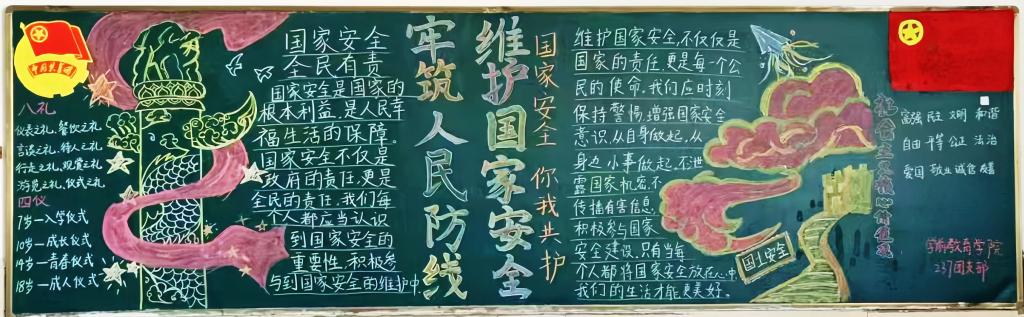 中国共青团
八礼
仪表之礼、餐饮之礼
言谈之礼、待人之礼
行走之礼、观赏之礼
游览之礼、仪式之礼
四仪
7岁—入学仪式
10岁—成长仪式
14岁—青春仪式
18岁—成人仪式
国家安全
全民有责
国家安全是国家的
根本利益,是人民幸
福生活的保障。
国家安全不仅是
政府的责任,更是
全民的责任,我们每
个人都应当认识
到国家安全的
重要性,积极参
与到国家安全的维护中.
牢筑人民防线
维护国家安全
国家安全 你我共护
维护国家安全,不仅仅是
国家的责任,更是每一个公
民的使命,我们应时刻
保持警惕,增强国家安全
意识,从自身做起,从
身边小事做起,不泄
露国家机密,不
传播有害信息,
积极参与国家
安全建设,只有当每
个人都将国家安全放在心中
我们的生活才能更美好。
国土安全
社会主义核心价值观
富强 民主 文明 和谐
自由 平等 公正 法治
爱国 敬业 诚信 友善
教育学院
237团支部